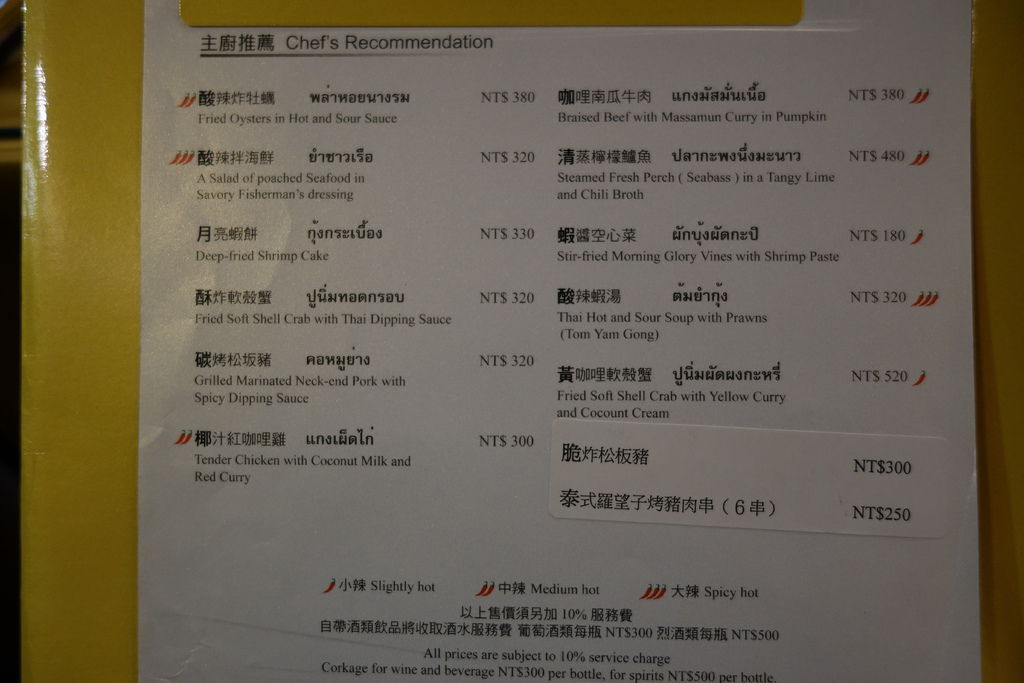 主廚推薦 Chef's Recommendation
酸辣炸牡蠣 พล่าหอยนางรม NT$ 380
Fried Oysters in Hot and Sour Sauce
酸辣拌海鮮 ยำชาวเรือ NT$ 320
A Salad of poached Seafood in
Savory Fisherman's dressing
月亮蝦餅 กุ้งกระเบื้อง NT$ 330
Deep-fried Shrimp Cake
酥炸軟殼蟹 ปูนิ่มทอดกรอบ NT$ 320
Fried Soft Shell Crab with Thai Dipping Sauce
碳烤松坂豬 คอหมูย่าง NT$ 320
Grilled Marinated Neck-end Pork with
Spicy Dipping Sauce
椰汁紅咖哩雞 แกงเผ็ดไก่ NT$ 300
Tender Chicken with Coconut Milk and
Red Curry
咖哩南瓜牛肉 แกงมัสมั่นเนื้อ NT$ 380
Braised Beef with Massamun Curry in Pumpkin
清蒸檸檬鱸魚 ปลากะพงนึ่งมะนาว NT$ 480
Steamed Fresh Perch ( Seabass ) in a Tangy Lime
and Chili Broth
蝦醬空心菜 ผักบุ้งผัดกะปิ NT$ 180
Stir-fried Morning Glory Vines with Shrimp Paste
酸辣蝦湯 ต้มยำกุ้ง NT$ 320
Thai Hot and Sour Soup with Prawns
(Tom Yam Gong)
黃咖哩軟殼蟹 ปูนิ่มผัดผงกะหรี่ NT$ 520
Fried Soft Shell Crab with Yellow Curry
and Cocount Cream
脆炸松板豬 NT$300
泰式羅望子烤豬肉串（6串） NT$250
小辣 Slightly hot 中辣 Medium hot 大辣 Spicy hot
以上售價須另加 10% 服務費
自帶酒類飲品將收取酒水服務費 葡萄酒類每瓶 NT$300 烈酒類每瓶 NT$500
All prices are subject to 10% service charge
Corkage for wine and beverage NT$300 per bottle, for spirits NT$500 per bottle.